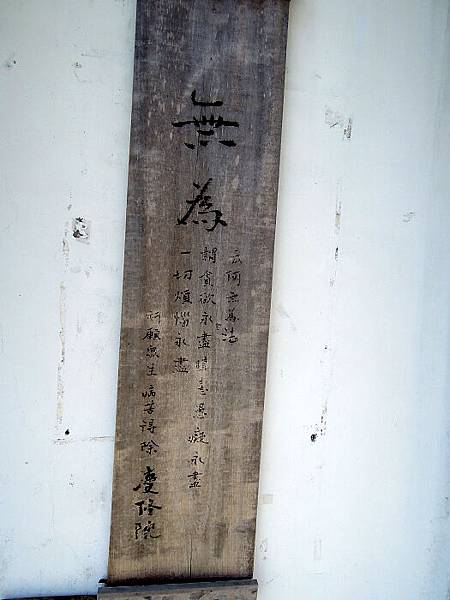 無為
云何無為法
謂貪欲永盡瞋恚愚癡永盡
一切煩惱永盡
祈願眾生病苦得除
慶修院